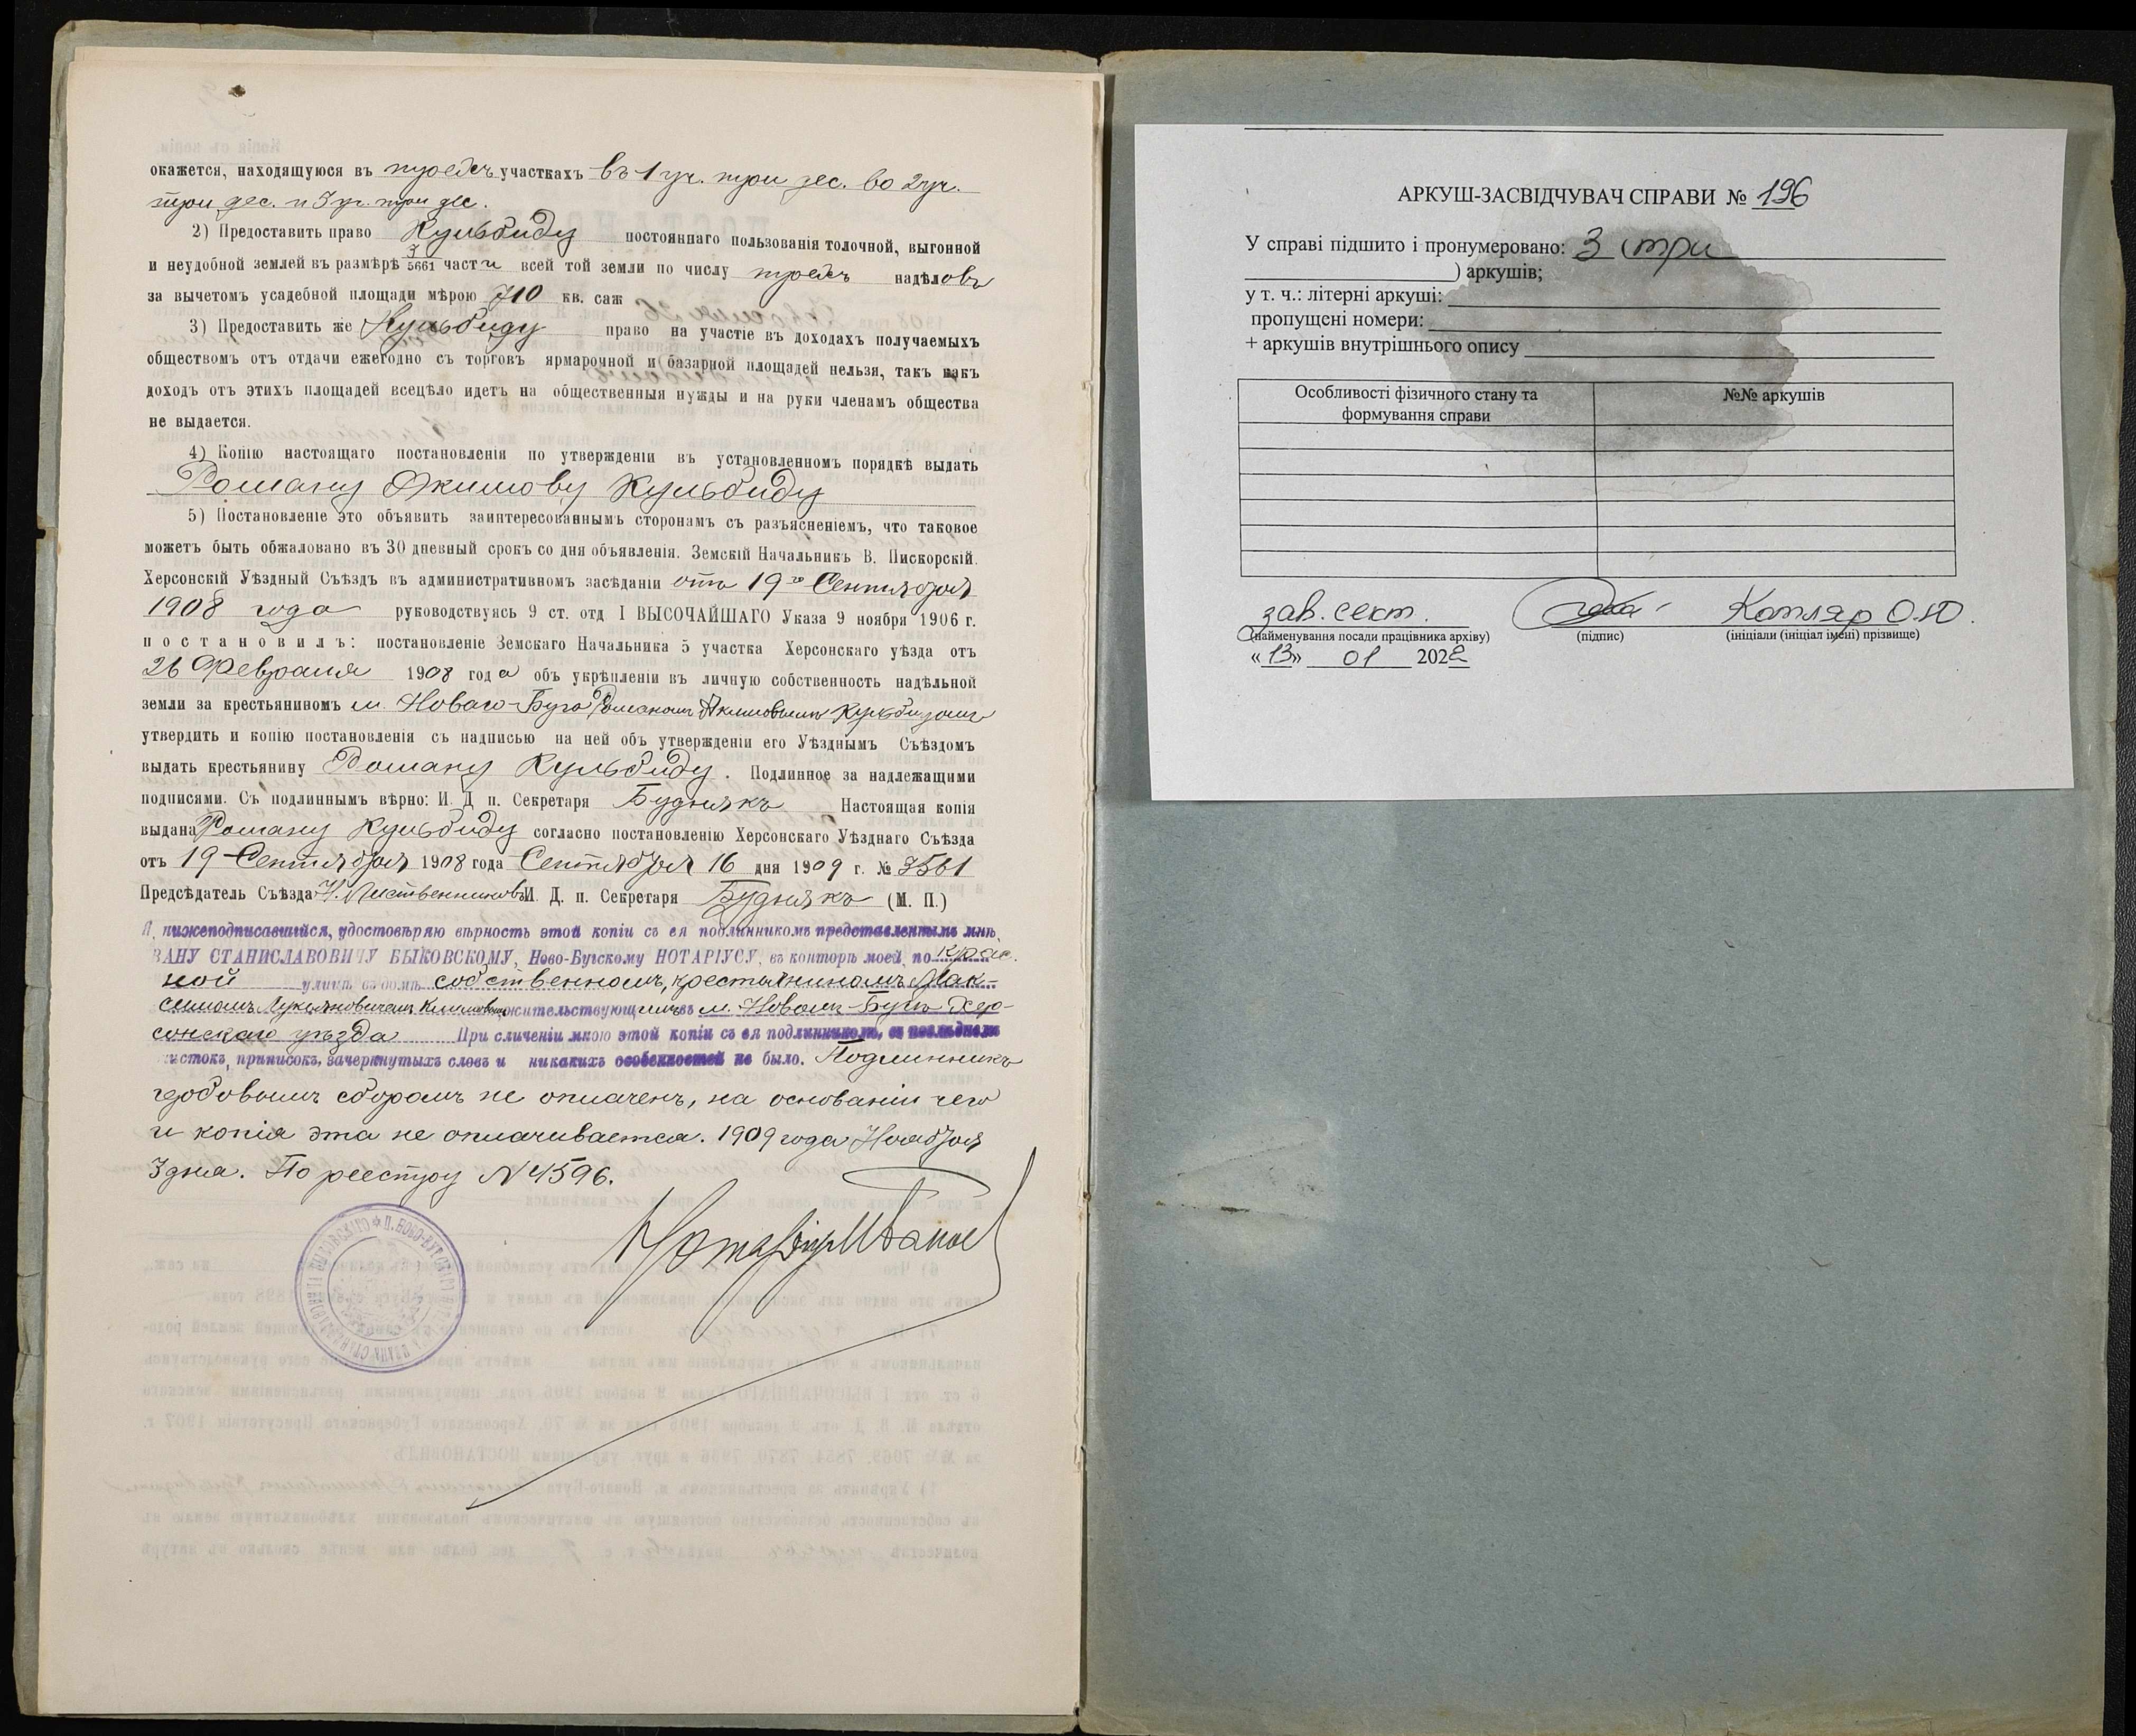 окажется, находящуюся въ трехъ участкахъ въ 1 уч. три дес. во 2 уч.
три дес. и 3 уч. три дес.
2) Предоставить право Кульбиду постояннаго пользованія толочной, выгонной
и неудобной землей въ размѣрѣ 3/5661 части всей той земли по числу трехъ надѣловъ
за вычетомъ усадебной площади мѣрою 710 кв. саж
3) Предоставить же Кульбиду право на участіе въ доходахъ получаемыхъ
обществомъ отъ отдачи ежегодно съ торговъ ярмарочной и базарной площадей нельзя, такъ какъ
доходъ отъ этихъ площадей всецѣло идетъ на общественныя нужды и на руки членамъ общества
не выдается.
4) Копію настоящаго постановленія по утвержденіи въ установленномъ порядкѣ выдать
Роману Якимову Кульбиду
5) Постановленіе это объявить заинтересованнымъ сторонамъ съ разъясненіемъ, что таковое
можетъ быть обжаловано въ 30 дневный срокъ со дня объявленія. Земскій Начальникъ В. Пискорскій.
Херсонскій Уѣздный Съѣздъ въ административномъ засѣданіи отъ 19го Сентября
1908 года руководствуясь 9 ст. отд I ВЫСОЧАЙШАГО Указа 9 ноября 1906 г.
постановилъ: постановленіе Земскаго Начальника 5 участка Херсонскаго уѣзда отъ
26 Февраля 1908 года объ укрѣпленіи въ личную собственность надѣльной
земли за крестьяниномъ м. Новаго-Буга Романомъ Якимовымъ Кульбидомъ
утвердить и копію постановленія съ надписью на ней объ утвержденіи его Уѣзднымъ Съѣздомъ
выдать крестьянину Роману Кульбиду. Подлинное за надлежащими
подписями. Съ подлиннымъ вѣрно: И. Д п. Секретаря Буднякъ Настоящая копія
выдана Роману Кульбиду согласно постановленію Херсонскаго Уѣзднаго Съѣзда
отъ 19 Сентября 1908 года Сентября 16 дня 1909 г. № 3561
Предсѣдатель Съѣзда Н. Лиственниковъ И. Д. п. Секретаря Буднякъ (М. П.)
Я, нижеподписавшійся, удостовѣряю вѣрность этой копіи съ ея подлинникомъ представленнымъ мнѣ
ВАНУ СТАНИСЛАВОВИЧУ БЫКОВСКОМУ, Ново-Бугскому НОТАРІУСУ, въ конторѣ моей, по Крас-
ной улицѣ въ домѣ собственномъ, крестьяниномъ Мак-
симомъ Лукьяновичемъ Климовымъ жительствующимъ въ м. Новомъ-Бугѣ Хер-
сонскаго уѣзда При сличеніи мною этой копіи съ ея подлинникомъ, въ послѣднемъ
чистокъ, приписокъ, зачеркнутыхъ словъ и никакихъ особенностей не было. Подлинникъ
гербовымъ сборомъ не оплаченъ, на основаніи чего
и копія эта не оплачивается. 1909 года Ноября
3 дня. По реестру № 4596.
Нотаріус
АРКУШ-ЗАСВІДЧУВАЧ СПРАВИ № 196
У справі підшито і пронумеровано: 3 (три
) аркушів;
у т. ч.: літерні аркуші:
пропущені номери:
+ аркушів внутрішнього опису
Особливості фізичного стану та формування справи
№№ аркушів
зав. сект. Котляр О.Ю.
(найменування посади працівника архіву) (підпис) (ініціали (ініціал імені) прізвище)
«13» 01 2022